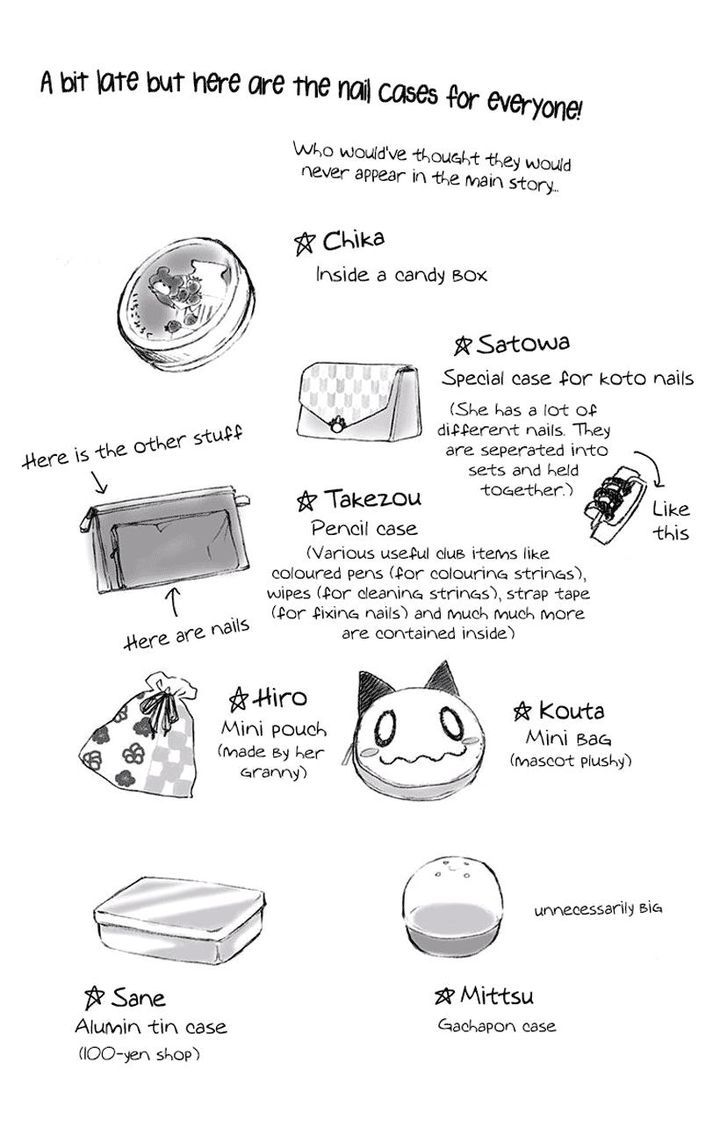 A bit late but here are the nail cases for everyone!
Who would've thought they would
never appear in the main story..
☆ Chika
Inside a candy box
☆ Satowa
Special case for koto nails
(She has a lot of
different nails. They
are seperated into
sets and held
together.)
Like
this
Here is the other stuff
☆ Takezou
Pencil case
(Various useful club items like
coloured pens (for colouring strings),
wipes (for cleaning strings), strap tape
(for fixing nails) and much much more
are contained inside)
Here are nails
☆ Hiro
Mini pouch
(made by her
granny)
☆ Kouta
Mini bag
(mascot plushy)
☆ Sane
Alumin tin case
(100-yen shop)
unnecessarily big
☆ Mittsu
Gachapon case